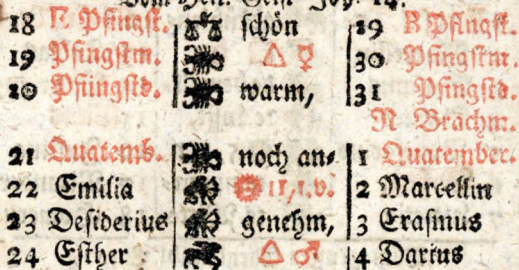 Vom Heil. Geist Joh. 14.
18 F. Pfingst. ♎ schön 29 B Pfingst.
19 Pfingstm. △ ☿ 30 Pfingstm.
20 Pfiingstd. warm, 31 Pfingstd.
N Brachm.
21 Quatemb. noch an⸗ 1 Quatember.
22 Emilia 11/1.v. 2 Marcellin
23 Desiderius genehm, 3 Erasmus
24 Esther △ ♂ 4 Darius